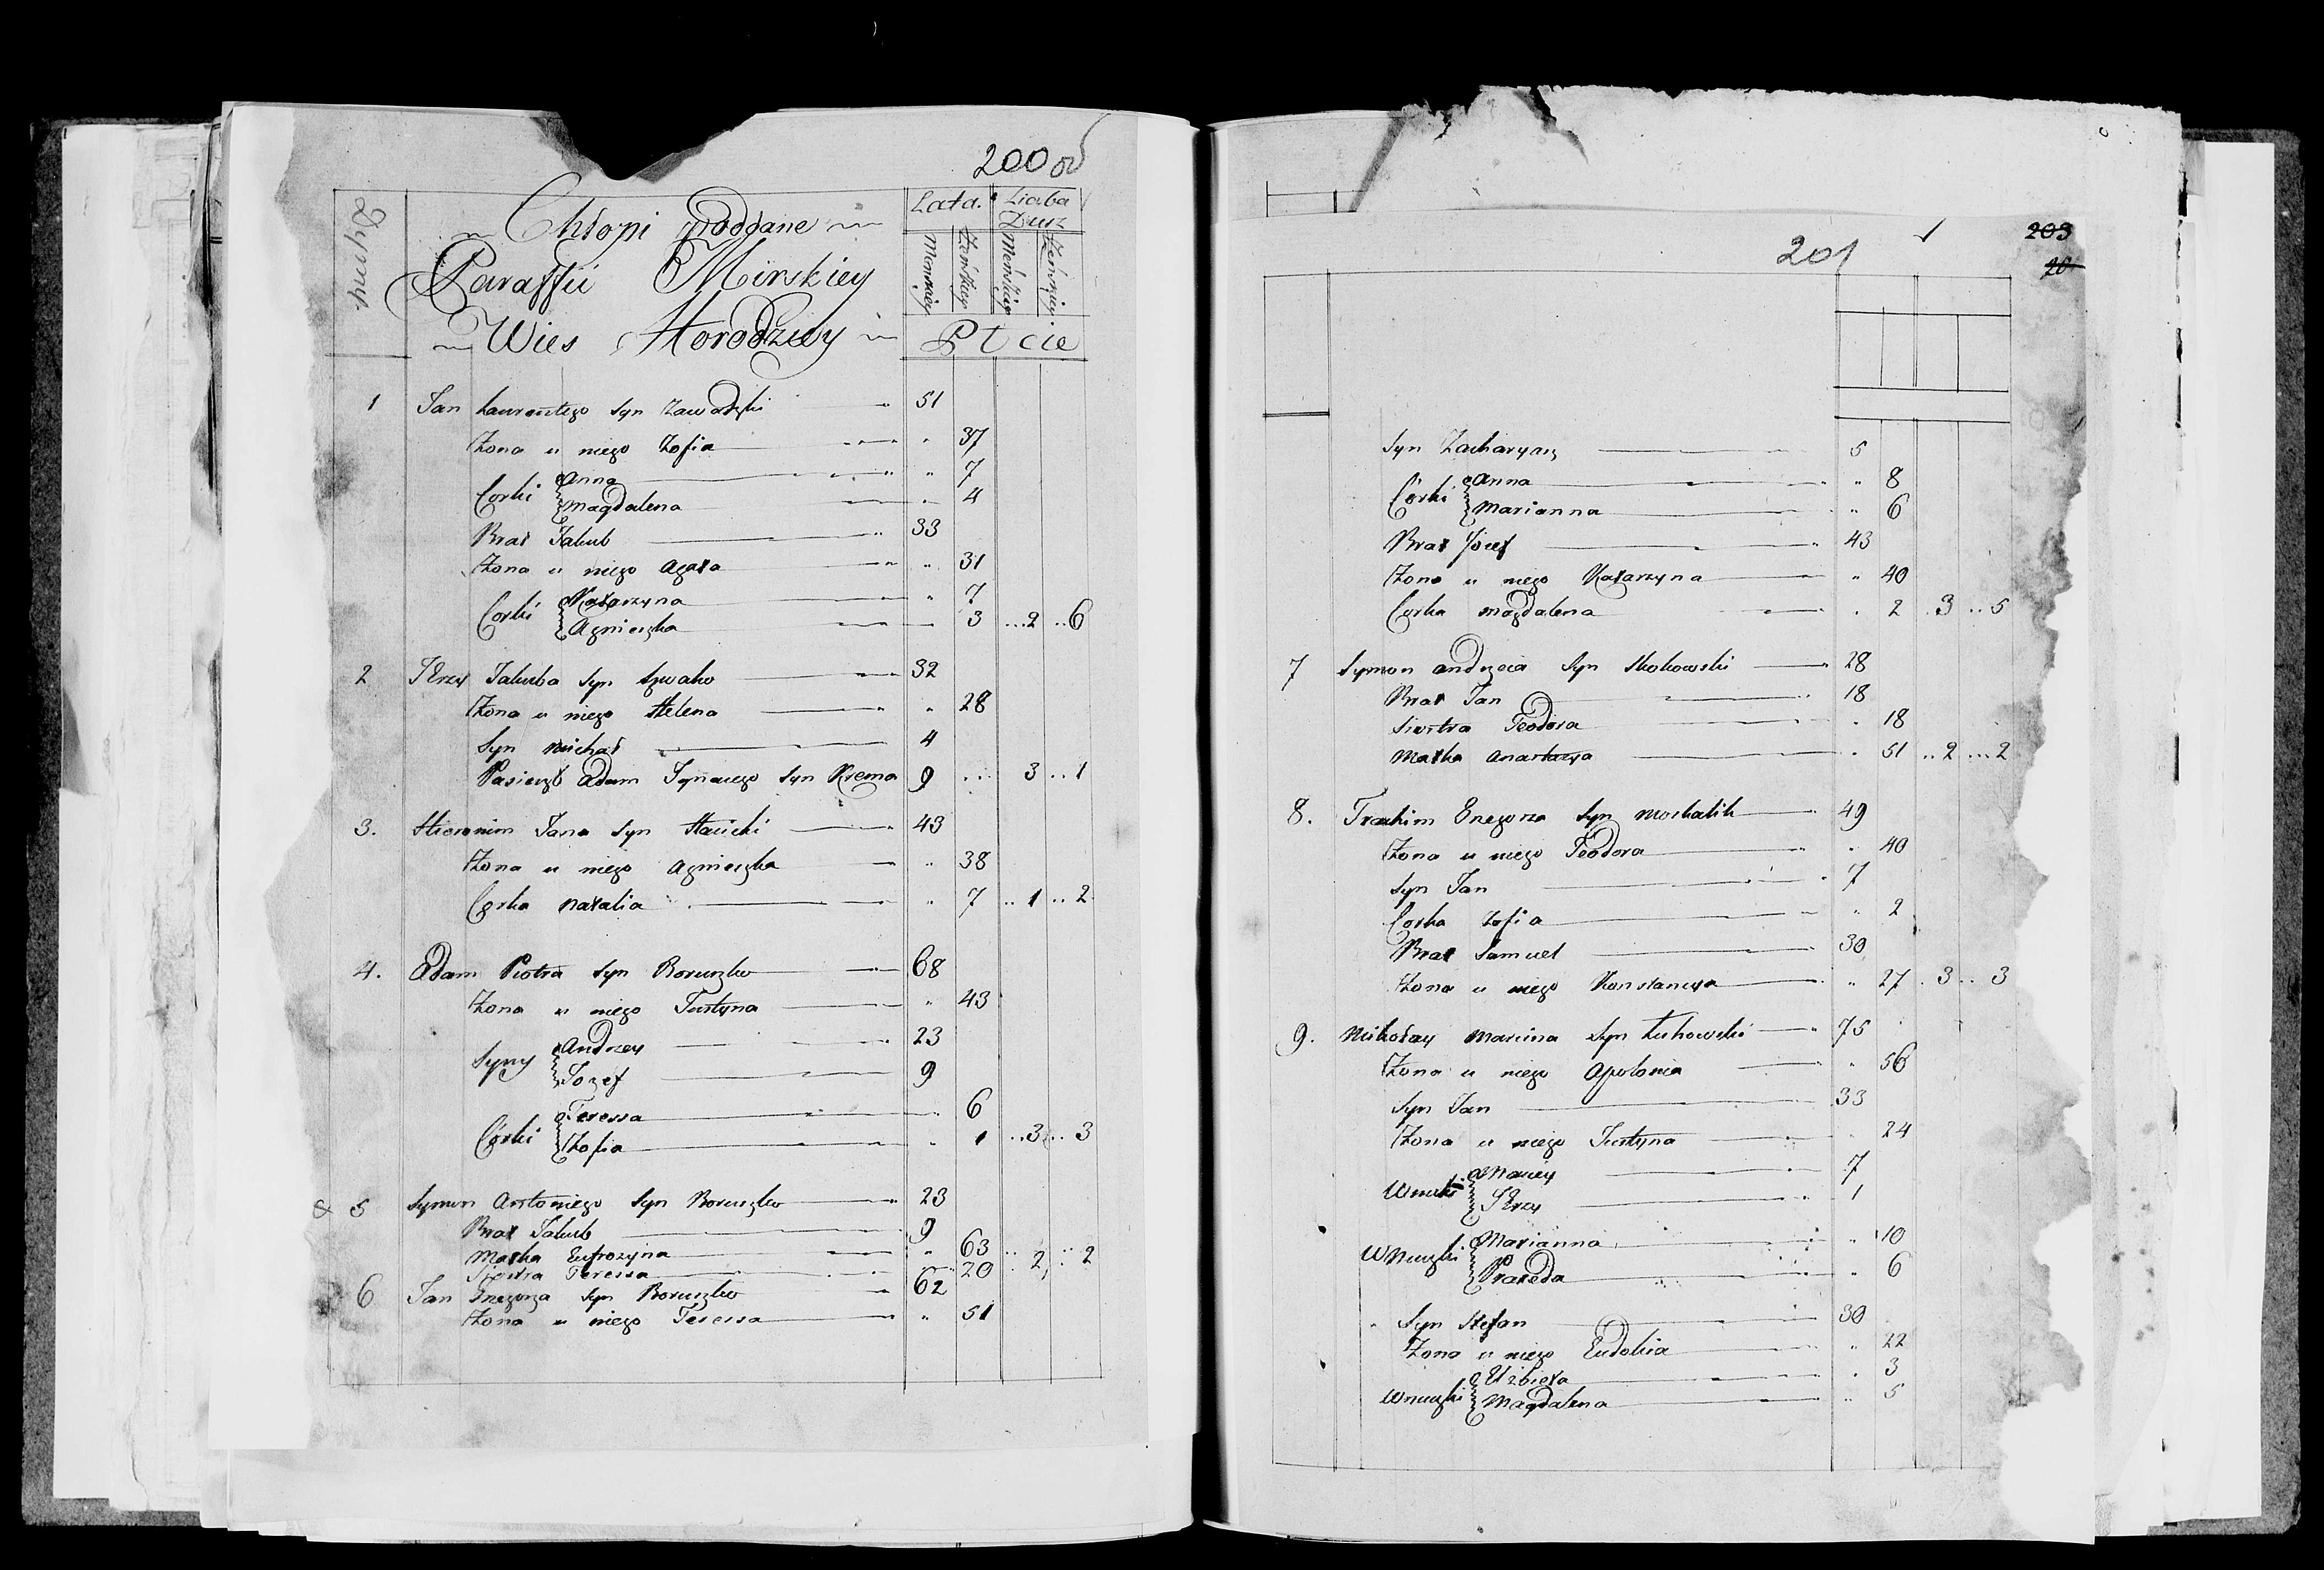 200 об
Dymy
Chłopi poddane
Paraffii Mirskiey
Wies Horodziey
Lata. Liczba Dusz
Męskiey Żeńskiey Męskiey Żeńskiey
Płcie
1 Jan Laurentego Syn Zawadzki 51
Żona u niego Zofia " 37
Corki Anna " 7
Magdalena " 4
Brat Jakub 33
Żona u niego Agata " 31
Corki Katarzyna " 7
Agnieszka 3 ...2 ..6
2 Jerzy Jakuba Syn Szwako 32
Żona u niego Helena " 28
Syn Michał 4
Pasierzb Adam Jgnacego Syn Krema 9 ... 3 ..1
3. Hieronim Jana Syn Hacicki 43
Żona u niego Agnieszka " 38
Corka Natalia " 7 ..1 ..2
4. Adam Piotra Syn Boruszko 68
Żona u niego Justyna " 43
Syny Andrzey 23
Jozef 9
Córki Teressa " 6
Zofia " 1 ...3 ... 3
5 Symon Antoniego Syn Boruszko 23
Brat Jakub 9
Matka Eufrozyna " 63 .. 2 .. 2
Siostra Teressa 20
6 Jan Grzegorza Syn Boruszko 62
Żona u niego Teressa " 51
201
203
20
Syn Zacharyasz 5
Córki Anna " 8
Marianna " 6
Brat Józef 43
Żona u niego Katarzyna " 40
Corka Magdalena . 2 . 3 .. 5
7 Symon Andrzeia Syn Skokowski 28
Brat Jan 18
Siostra Teodora . 18
Matka Anastazya . 51 ..2 ...2
8. Joachim Grzegorza Syn Moskalik 49
Żona u niego Teodora " 40
Syn Jan 7
Corka Zofia " 2
Brat Samuel 30
Żona u niego Konstancya " 27 . 3 .. 3
9. Mikołay Marcina Syn Łukowski 75
Żona u niego Apolonia " 56
Syn Jan 33
Żona u niego Justyna 24
Wnuki Maciey 7
Jerzy 1
Wnuczki Marianna " 10
Praxeda " 6
Syn Stefan 30
Żona u niego Eudokia " 22
Wnuczki Elżbieta . 3
Magdalena " 5